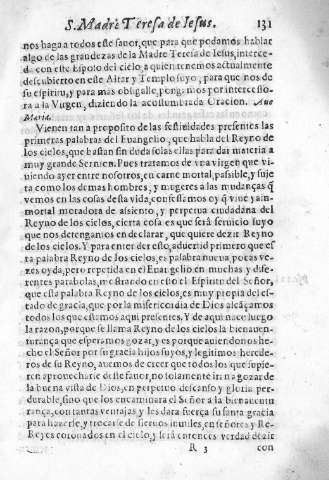 S. Madre Teresa de Iesus. 131
nos haga a todos este fauor, que para que podamos hablar
algo de las grandezas de la Madre Teresa de Iesus, interce-
da con este Esposo del cielo, a quien tenemos actualmente
descubierto en este Altar y Templo suyo, para que nos de
su espiritu, y para mas obligalle, pongamos por intercesso
ra a la Virgen, diziendo la acostumbrada Oracion. Aue
Maria.
Vienen tan a proposito de las festiuidades presentes las
primeras palabras del Euangelio, que habla del Reyno de
los cielos, que bastan sin duda solas ellas para dar materia a
muy grande Sermon. Pues tratamos de vna virgen que vi-
uiendo ayer entre nosotros, en carne mortal, passible, y suje
ta como los demas hombres, y mugeres a las mudanças q̃
vemos en las cosas desta vida, confessamos oy q̃ viue ya im-
mortal moradora de asiento, y perpetua ciudadana del
Reyno de los cielos, cierta cosa es que será seruicio suyo
que nos detengamos en declarar, que quiere dezir Reyno
de los cielos. Y para entender esto, aduertid primero que es
ta palabra Reyno de los cielos, es palabra nueua pocas ve-
zes oyda, pero repetida en el Euangelio en muchas y dife-
rentes parabolas, mostrando en esto el Espiritu del Señor,
que esta palabra Reyno de los cielos, es muy propia del es-
tado de gracia, que por la misericordia de Dios alcãçamos
todos los que estamos aqui presentes. Y de aqui nace luego
la razon, porque se llama Reyno de los cielos la bienauen-
turança que esperamos gozar, y es porque auiendonos he-
cho el Señor por su gracia hijos suyos, y legitimos herede-
ros de su Reyno, auemos de creer que todos los que supie-
ren aprouecharse deste fauor, no solamente iran a gozar de
la buena vista de Dios, en perpetuo descanso y gloria per-
durable, sino que los encaminara el Señor a la bienauentu
rança, con tantas ventajas y les dara fuerça su santa gracia
para hazerle, y trocarse de sieruos inutiles, en señores y Re-
Reyes coronados en el cielo, y será entonces verdad dezir
R 3 con